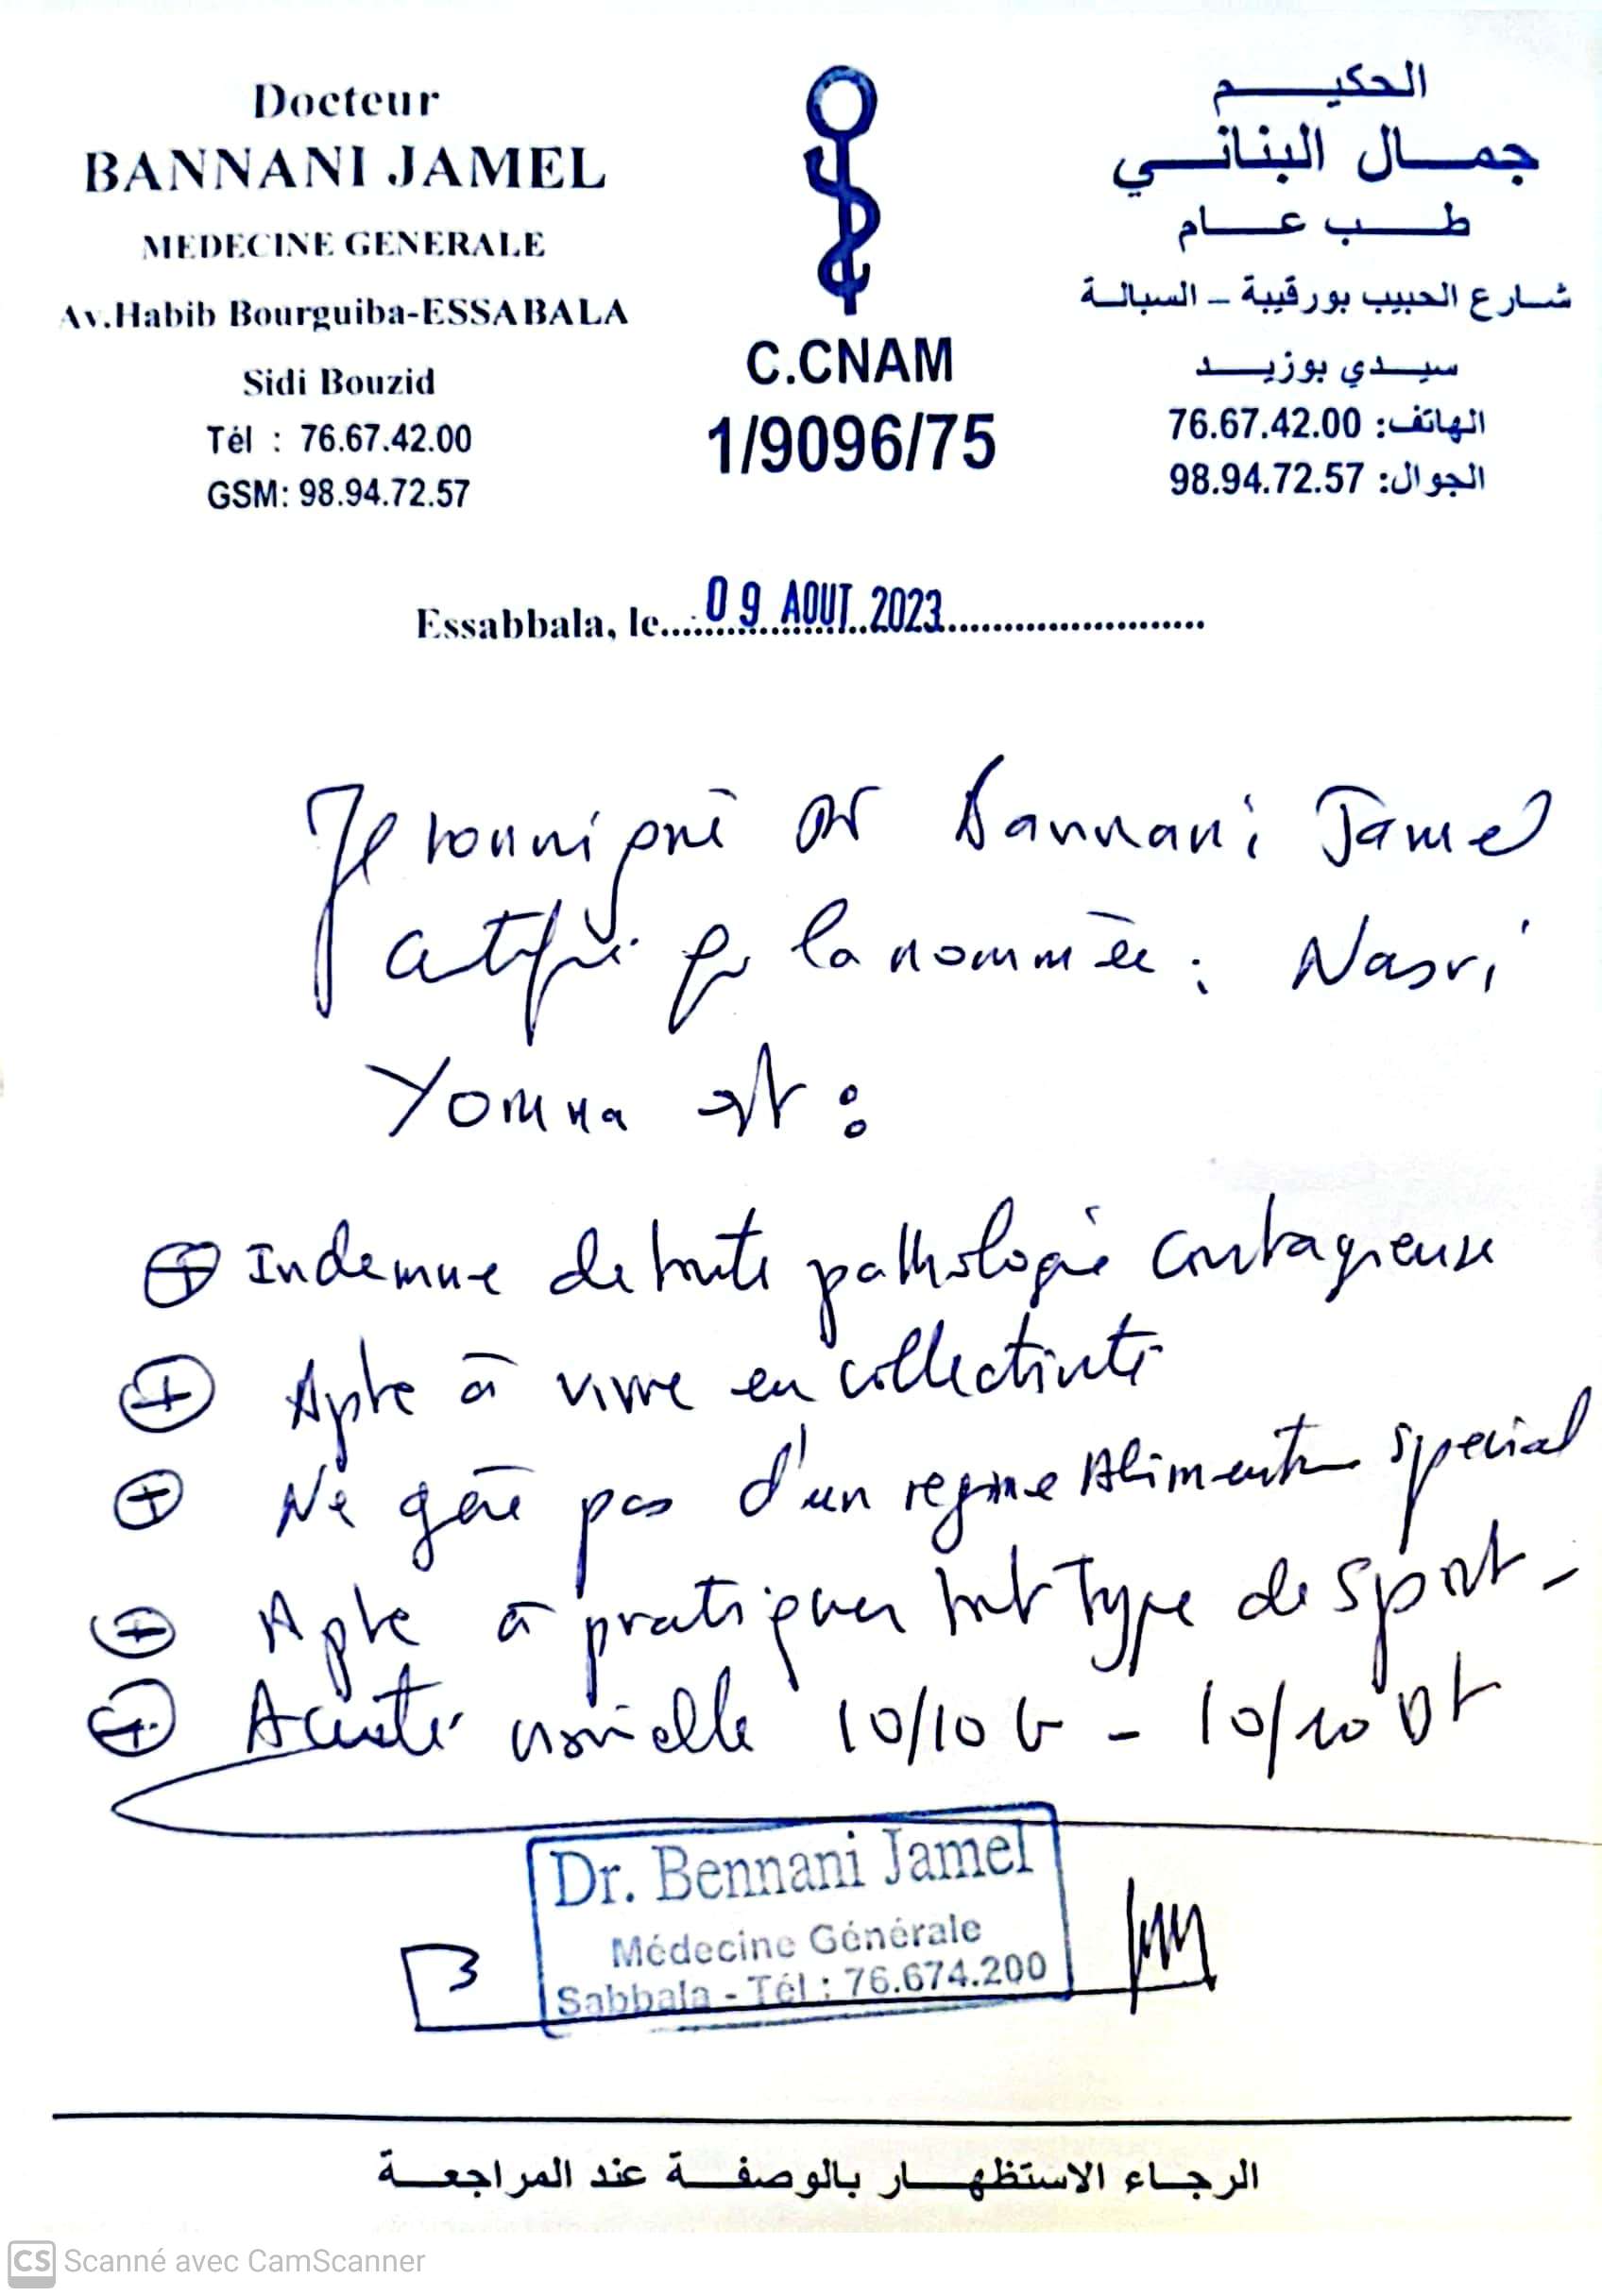 Docteur
BANNANI JAMEL
MEDECINE GENERALE
Av.Habib Bourguiba-ESSABALA
Sidi Bouzid
Tél : 76.67.42.00
GSM: 98.94.72.57
C.CNAM
1/9096/75
الحكيم
جمال البناني
طب عام
شارع الحبيب بورقيبة - السبالة
سيدي بوزيد
الهاتف: 76.67.42.00
الجوال: 98.94.72.57
Essabbala, le 09 AOUT 2023
Je soussigné Dr Bannani Jamel
certifie que la nommée : Nasri
Yomna est :
Indemne de toute pathologie contagieuse
Apte à vivre en collectivité
Ne pas d'un regime Alimentaire special
Apte à pratiquer tout Type de Sport -
Acuité visuelle 10/10 G - 10/10 Dt
Dr. Bennani Jamel
Médecine Générale
Sabbala - Tél : 76.674.200
الرجاء الاستظهار بالوصفة عند المراجعة
CS Scanné avec CamScanner